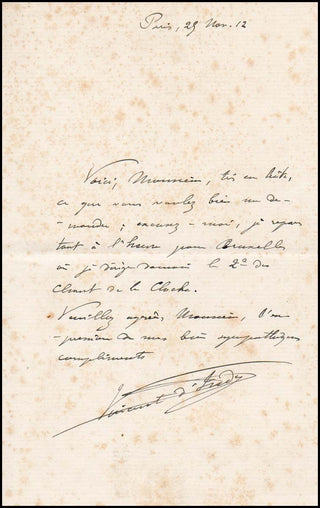 Paris, 25 Nov. 12
Voici, Monsieur, très en hâte,
ce que vous voulez bien me de-
mander ; excusez-moi, je repars
tout à l'heure pour Bruxelles
où je dirige demain le 2d des
Chant de la Cloche.
Veuillez agréer, Monsieur, l'ex-
pression de mes bien sympathiques
compliments
Vincent d'Indy